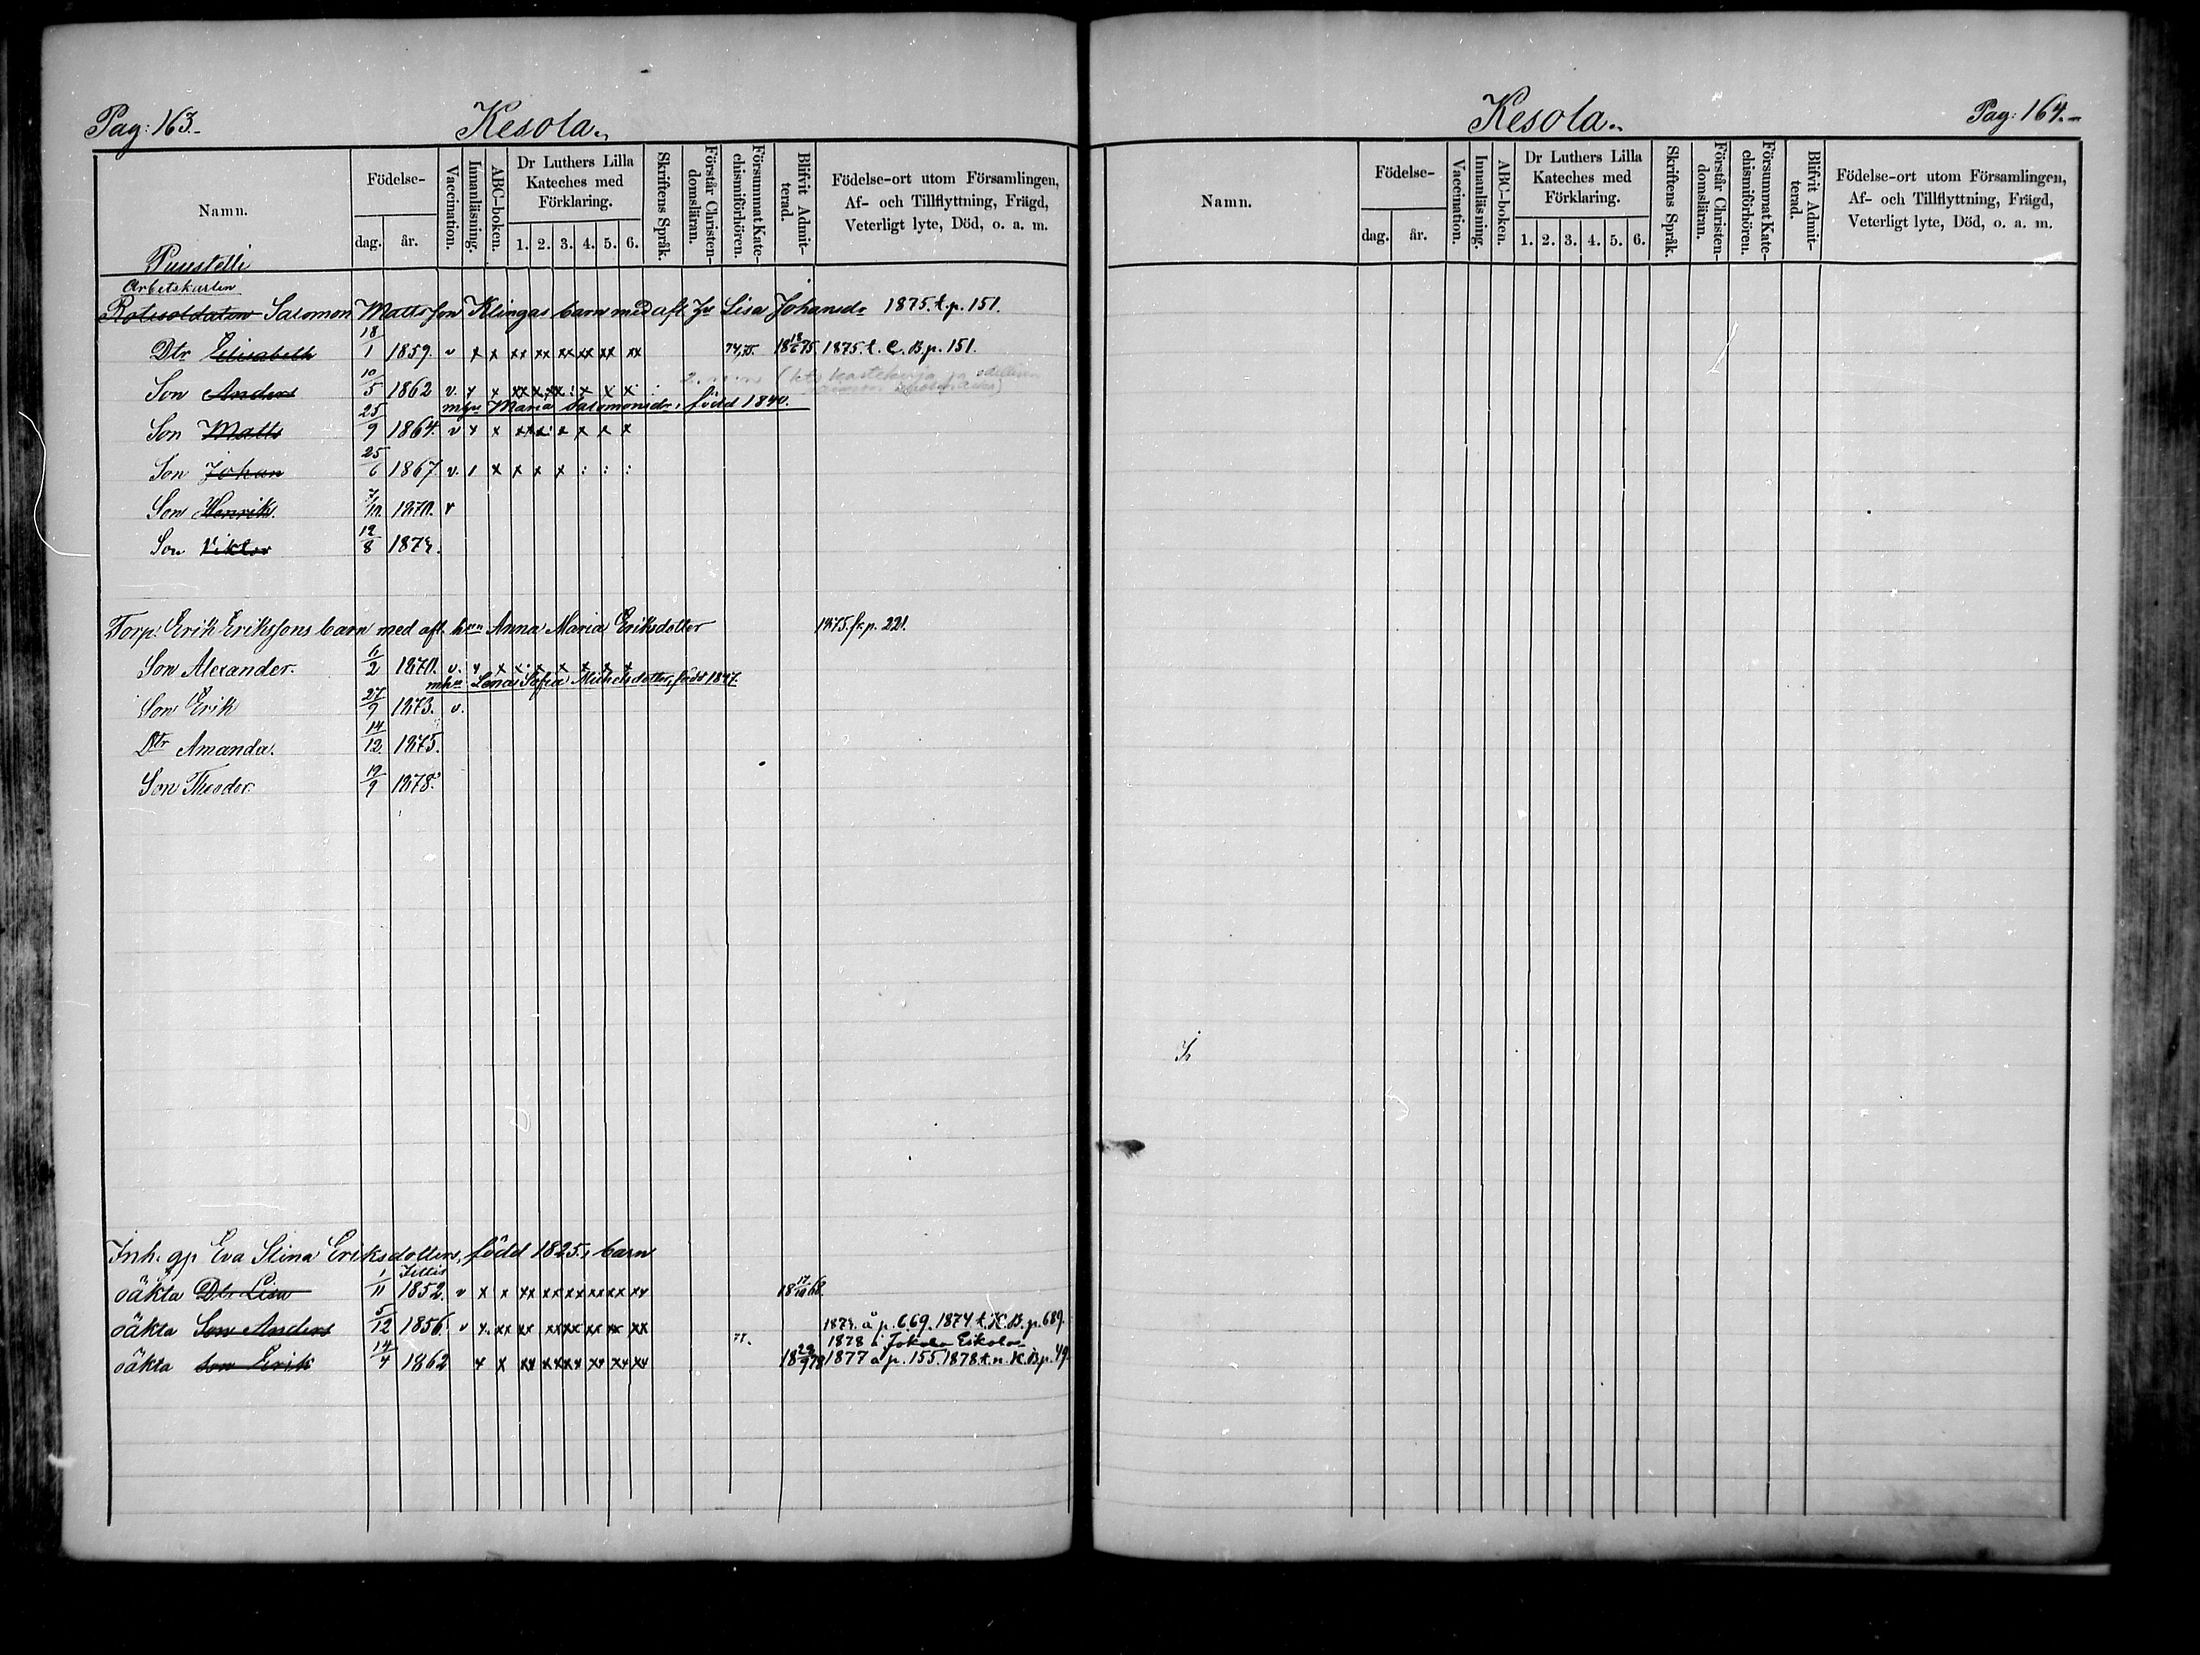 Pag: 163.
Kesola.
Namn.
Födelse-
dag.
år.
Vaccination.
Innanläsning.
ABC-boken.
Dr Luthers Lilla Kateches med Förklaring.
1. 2. 3. 4. 5. 6.
Skriftens Språk.
Förstår Christendomsläran.
Försummat Katechismiförhören.
Blifvit Admitterad.
Födelse-ort utom Församlingen, Af- och Tillflyttning, Frägd, Veterligt lyte, Död, o. a. m.
Puustelli
Arbetskarlen
Rotesoldaten Salomon Mattsson Klingas barn med afl. Lisa Johansdr 1875. t. p. 151.
Dtr Elisabeth 18/1 1859. v x x xx xx xx xx xx xx 74,75. 1875. t. C. B. p. 151.
Son Anders 10/5 1862 v. x x xx x xx x x x
mhu Maria Salomonsdr, född 1840.
Son Matts 25/9 1864. v x x xx x x x x x
Son Johan 25/6 1867. v. 1 x x x x : : :
Son Henrik. 7/10. 1870. v
Son Viktor 12/8 1872.
Torp: Erik Erikssons barn med afl. hrn Anna Maria Eriksdotter 1875. fr. p. 221.
Son Alexander. 6/2 1870. v. x x x x x x x x
mhu Lena Sofia Michelsdotter, född 1847.
Son Erik 27/9 1873. v.
Dtr Amanda. 14/12. 1875.
Son Theodor. 19/9 1878.
Inh. gp Eva Stina Eriksdotters, född 1825, barn
Jittis
oäkta Dtr Lisa 1/11 1852. v x x xx xx xx xx xx xx 18 17/10 68.
oäkta Son Anders 5/12 1856. v x. xx xx xx xx xx xx xx 1872. å p. 669. 1874 t. K. B. p. 689.
77. 1878 i Jokela Eskola
oäkta Son Erik 14/4 1862 x x xx xx xx xx xx xx 18 29/9 78 1877 å p. 155. 1878 t. n. K. B. p. 49.
Kesola.
Pag: 164.
Namn.
Födelse-
dag.
år.
Vaccination.
Innanläsning.
ABC-boken.
Dr Luthers Lilla Kateches med Förklaring.
1. 2. 3. 4. 5. 6.
Skriftens Språk.
Förstår Christendomsläran.
Försummat Katechismiförhören.
Blifvit Admitterad.
Födelse-ort utom Församlingen, Af- och Tillflyttning, Frägd, Veterligt lyte, Död, o. a. m.